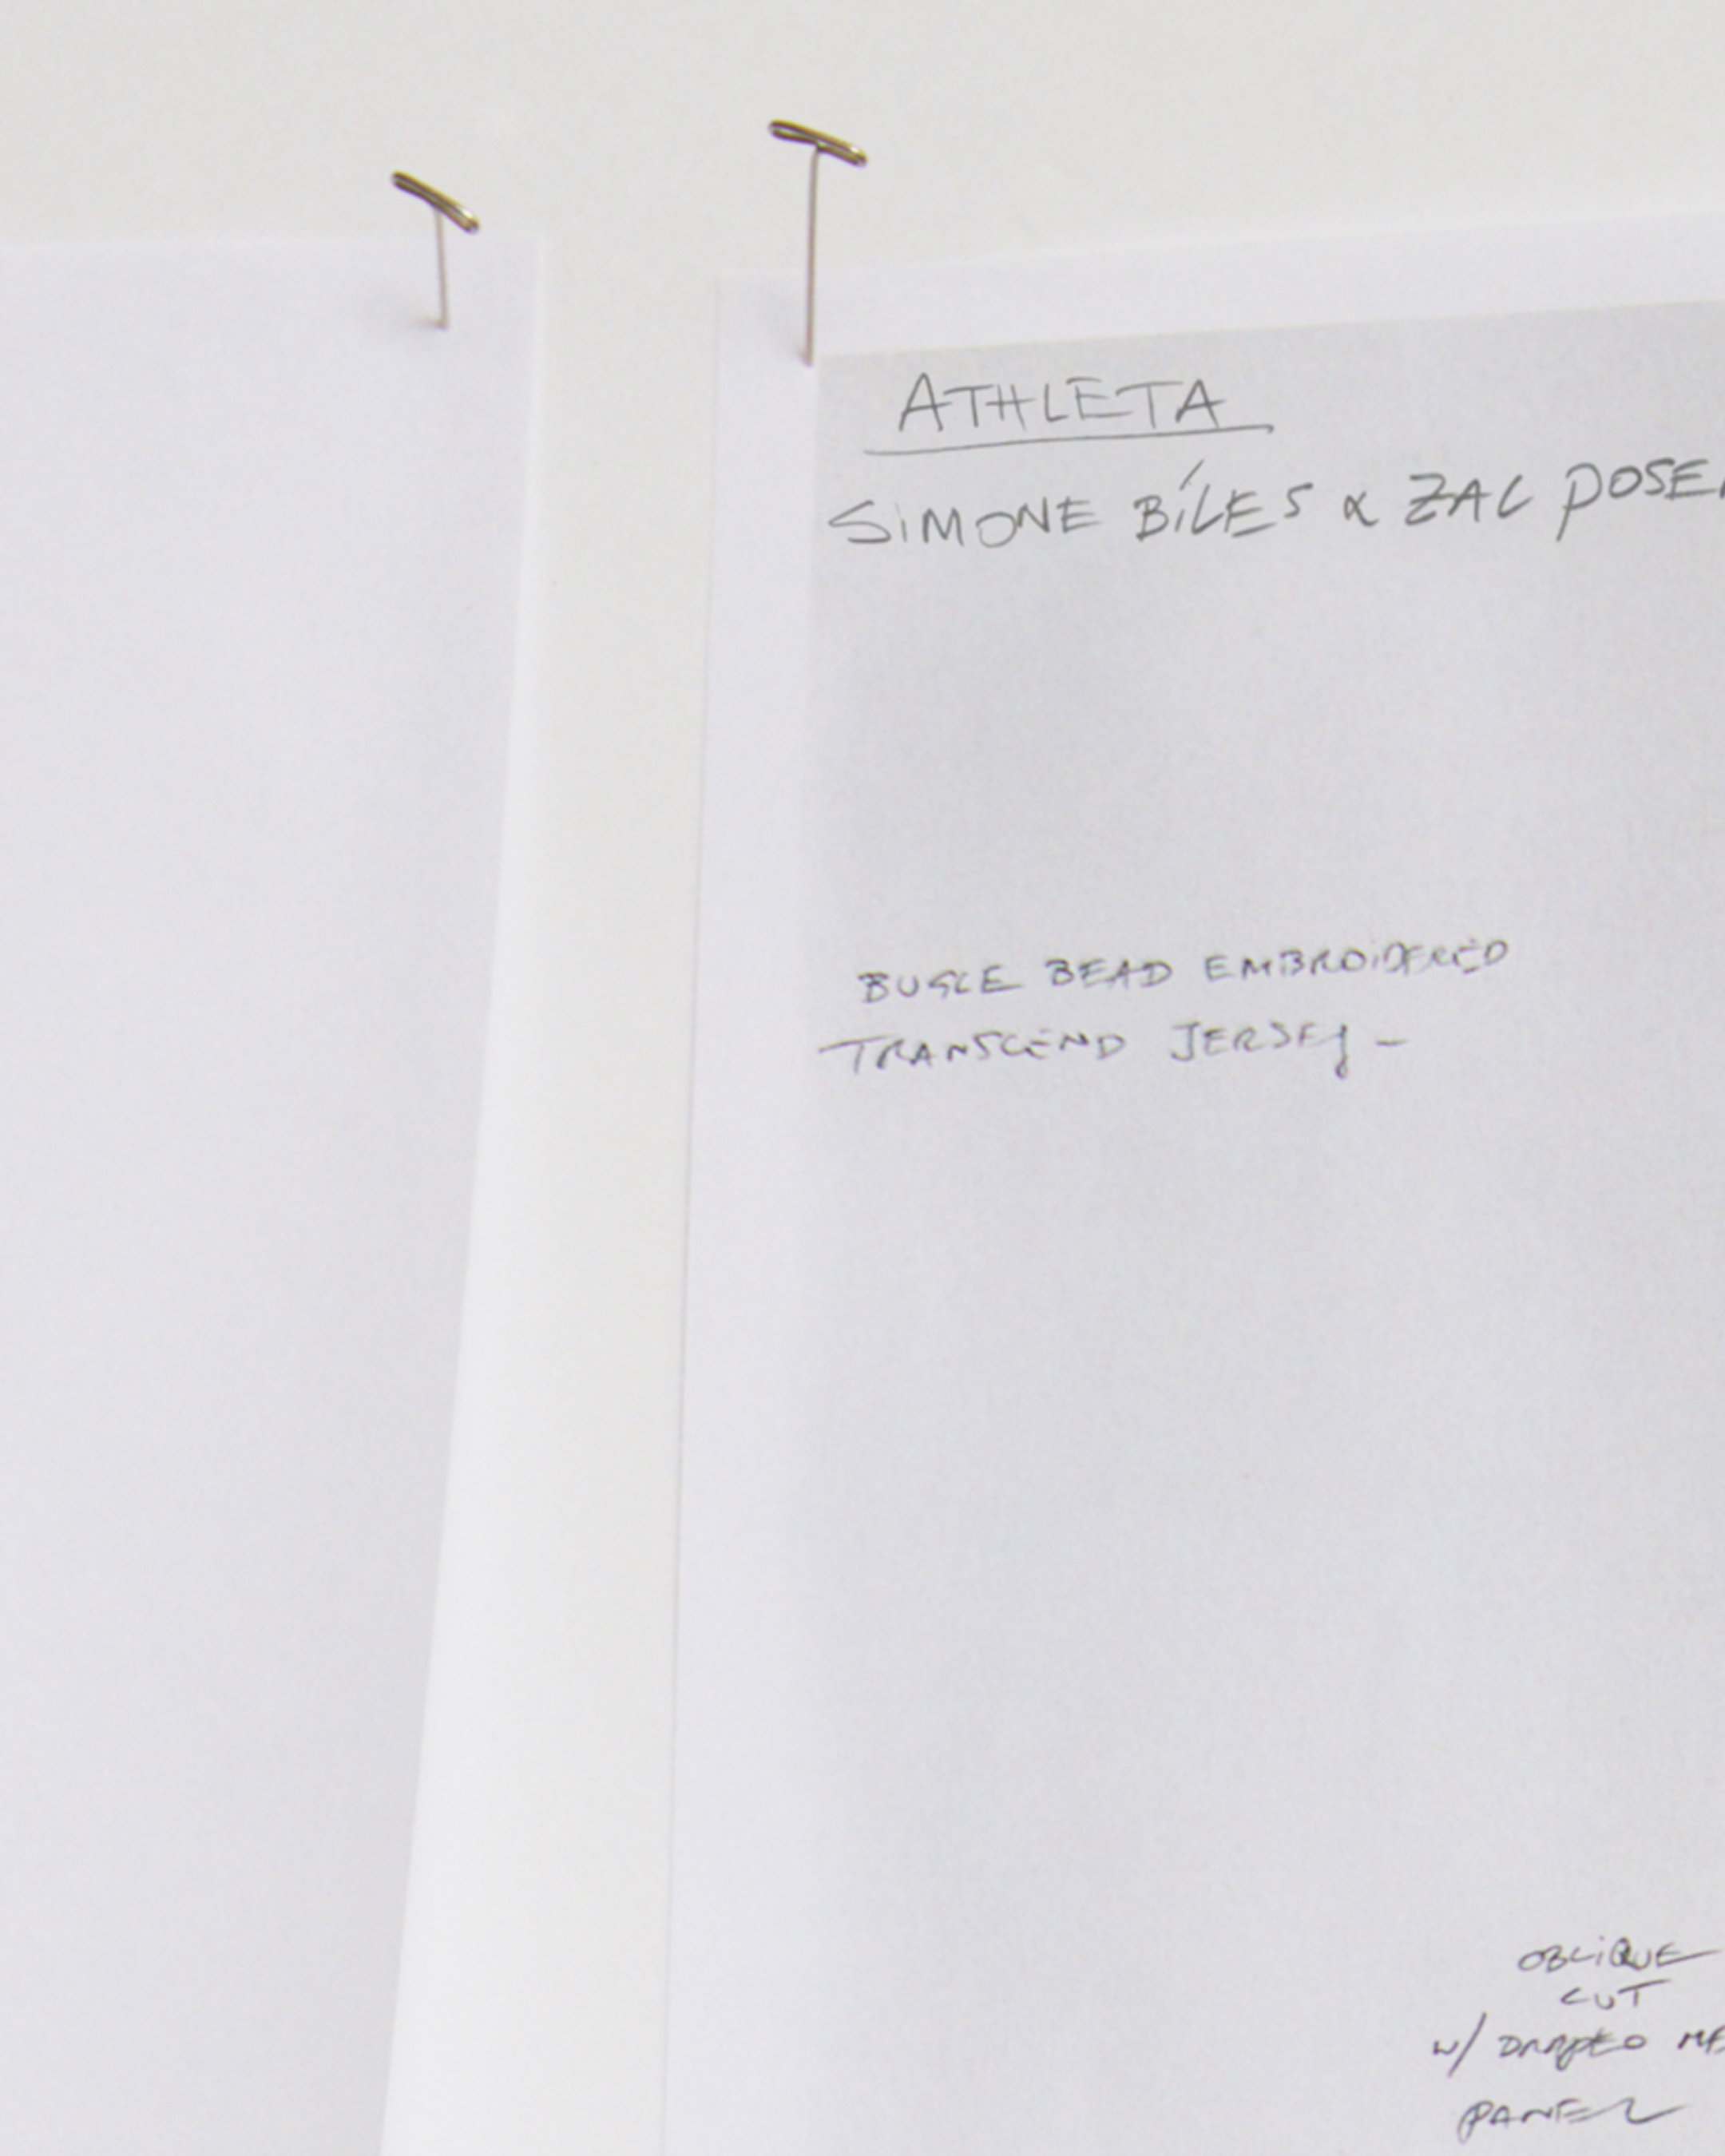 ATHLETA
SIMONE BILES & ZAC POSE
BUGLE BEAD EMBROIDERED
TRANSCEND JERSEY -
OBLIQUE
CUT
W/ DRAPED ME
PANEL